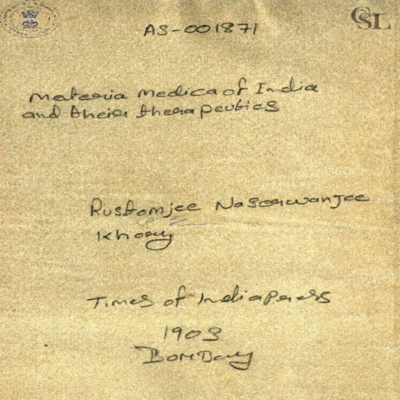 AS-001871
CSL
Materia Medica of India
and their therapeutics
Rustomjee Naserwanjee
Khory
Times of India press
1903
Bombay